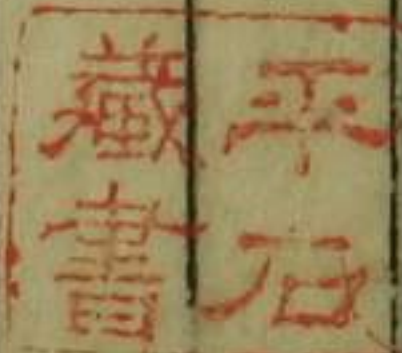 平石
藏書